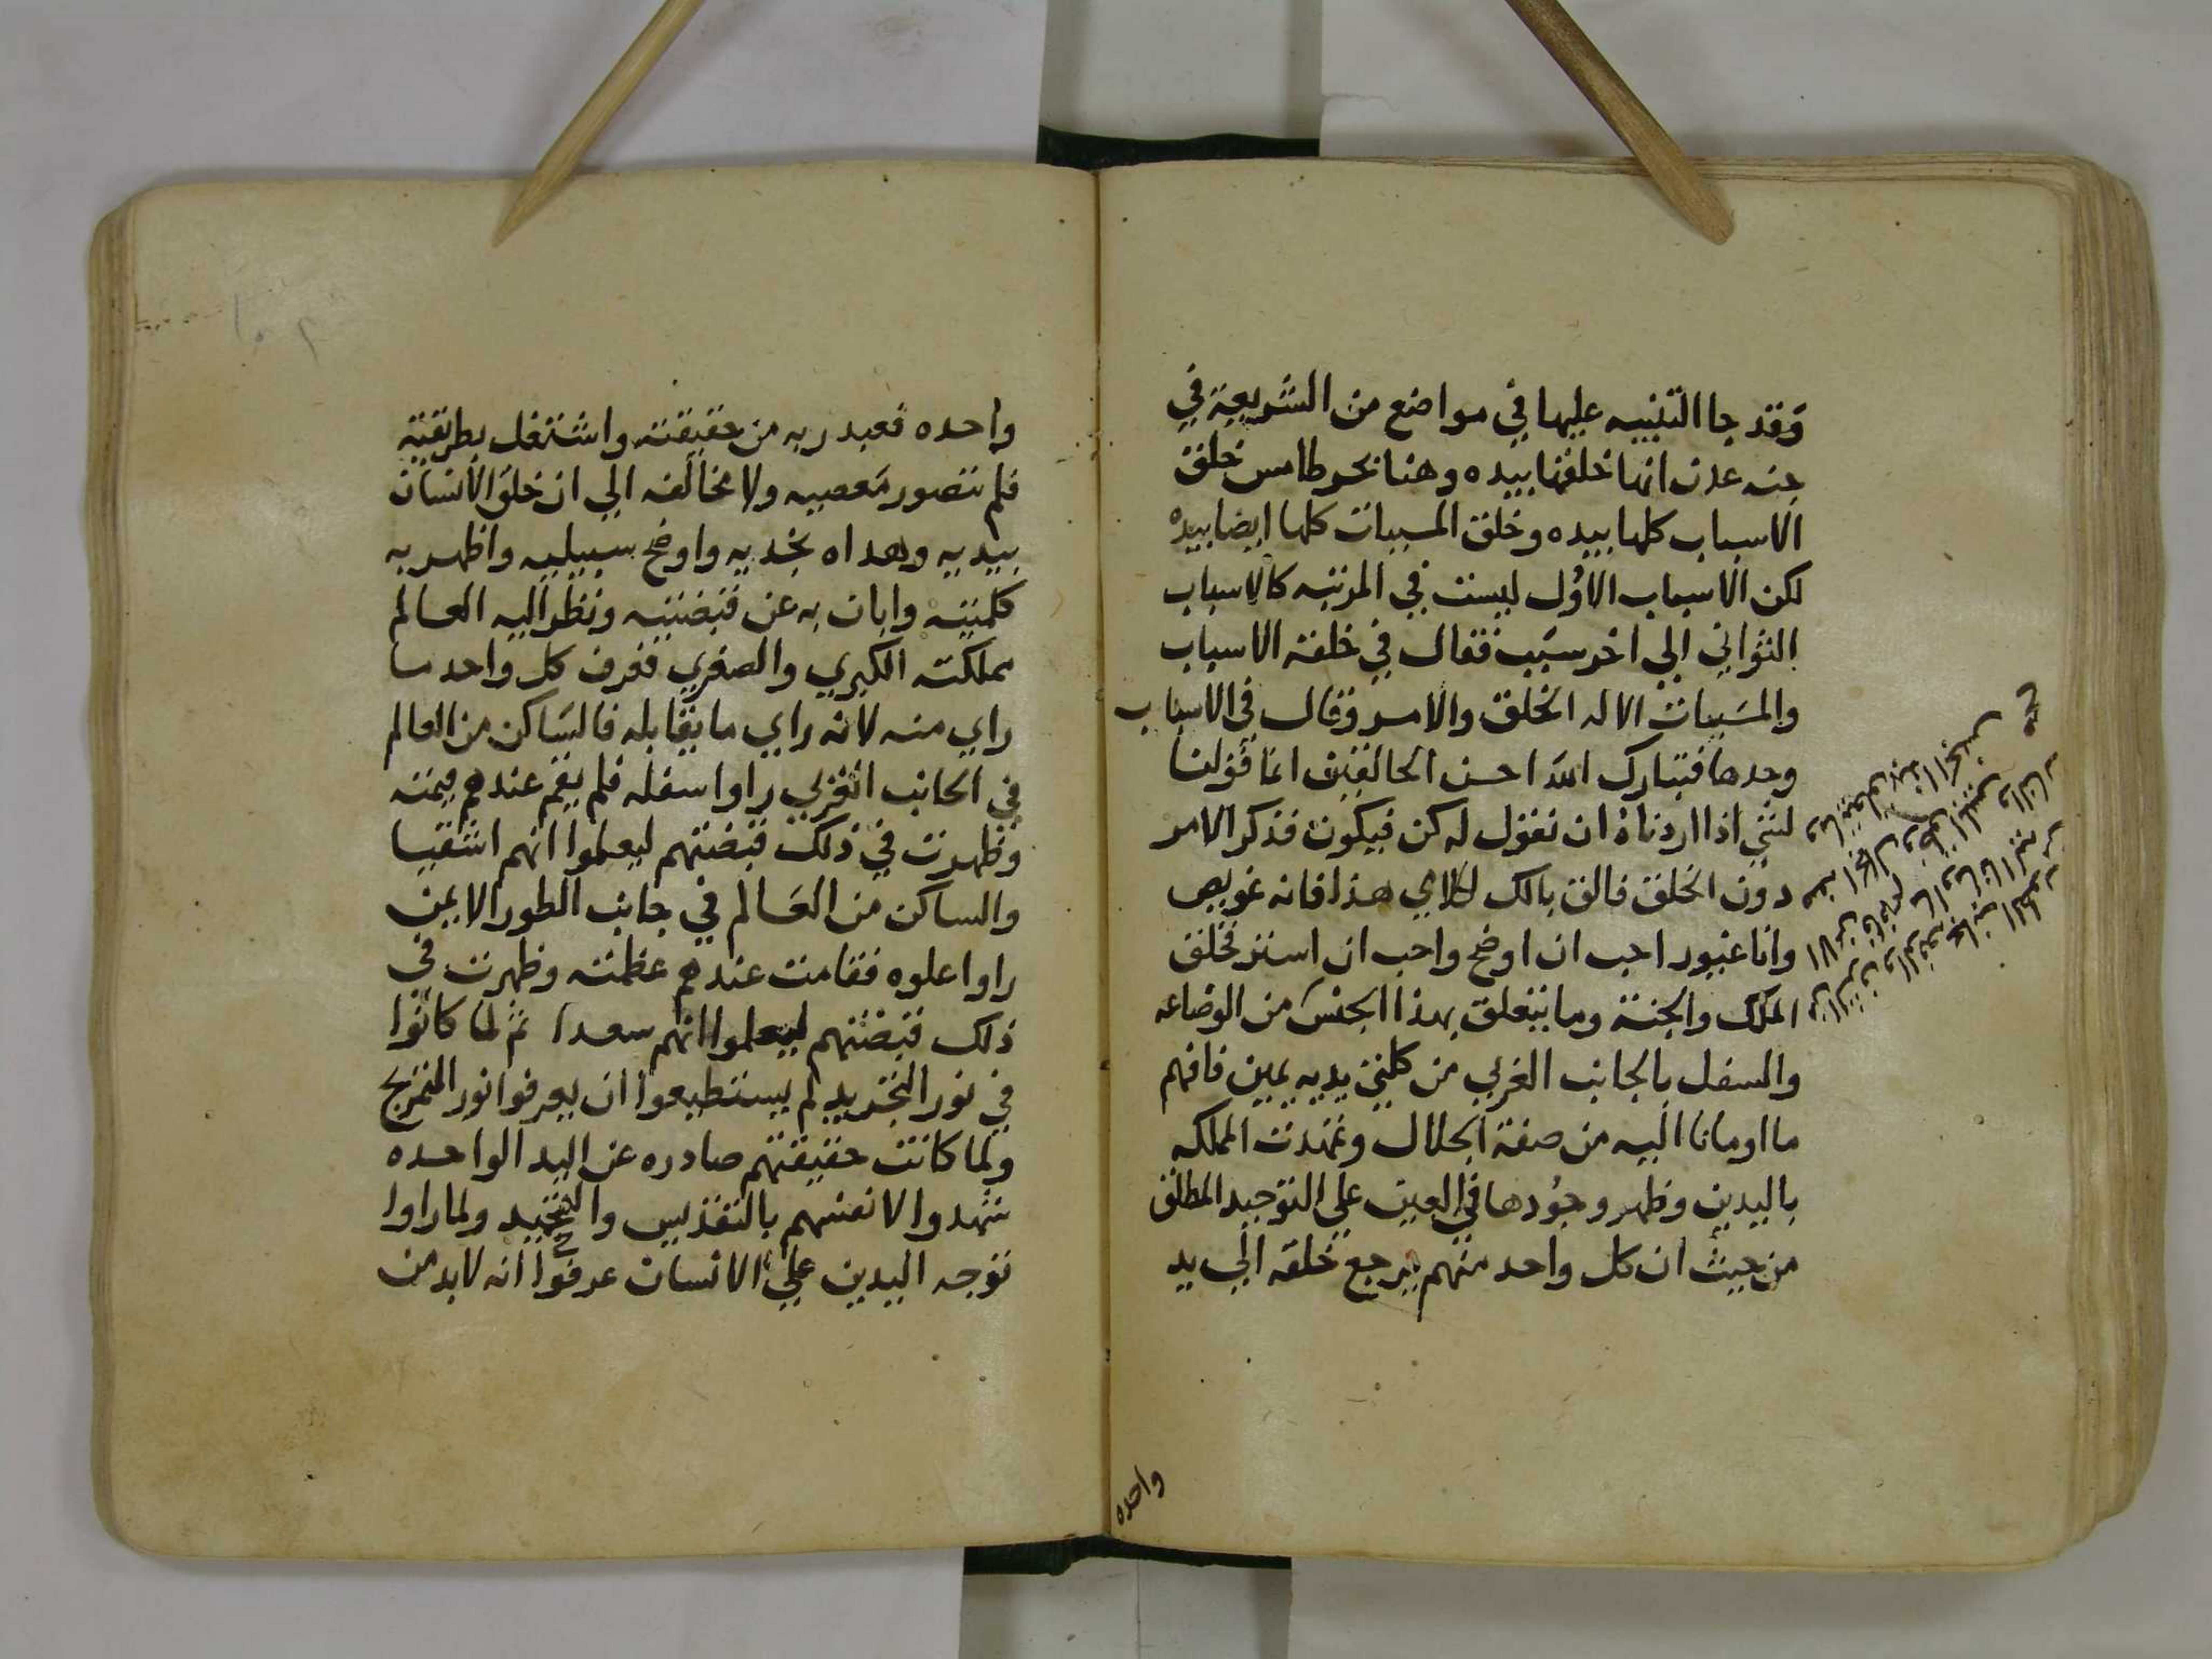 وقد جا التنبيه عليها في مواضع من الشريعة في
جنه عدن انها خلقها بيده وهنا بحر طامس خلق
الاسباب كلها بيده وخلق المسببات كلها ايضا بيده
لكن الاسباب الاول ليست في المرتبه كالاسباب
الثواني الي اخر سبب فقال في خلقه الاسباب
والمسببات الا له الخلق والامر وقال في الاسباب
وحدها فتبارك الله احسن الخالقين انما قولنا
لشي اذا اردناه ان نقول له كن فيكون فذكر الامر
دون الخلق فالق بالك لكلامي هذا فانه عويص
وانا غيور احب ان اوضح واحب ان استر فخلق
الملك والجنة وما يتعلق بهذا الجنس من الوضاعه
والسفل بالجانب الغربي من كلتي يديه يمين فافهم
ما اومانا اليه من صفة الجلال وتمهدت المملكه
باليدين وظهر وجودها في العين علي التوحيد المطلق
من حيث ان كل واحد منهم يرجع خلقه الي يد
وما يتعلق بهذا الجنس
واحده
واحده فعبد ربه من حقيقته واشتغل بطريقته
فلم تتصور معصيه ولا مخالفه الي ان خلق الانسان
بيديه وهداه نجديه واوضح سبيليه واظهر به
كلمتيه وابان به عن قبضتيه ونظر اليه العالم
مملكته الكبري والصغري فعرف كل واحد ما
راي منه لانه راي ما يقابله فالساكن من العالم
في الجانب الغربي راوا سفله فلم يقم عندهم قيمته
وظهرت في ذلك قبضتهم ليعلموا انهم اشقيا
والساكن من العالم في جانب الطور الايمن
راوا علوه فقامت عندهم عظمته وظهرت في
ذلك قبضتهم ليعلموا انهم سعدا ثم لما كانوا
في نور التجريد لم يستطيعوا ان يعرفوا نور المتمزج
ولما كانت حقيقتهم صادره عن اليد الواحده
شهدوا لانفسهم بالتقديس والتمجيد ولما راوا
توجه اليدين علي الانسان عرفوا انه لابد من